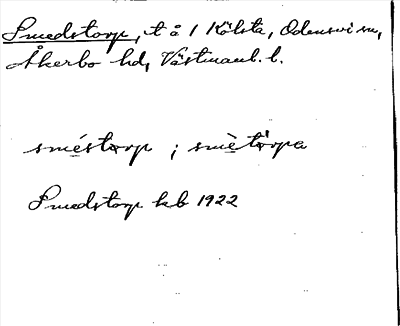 Smedstorp, t å 1 Kölsta, Odensvi sn,
Åkerbo hd, Västmanl. l.
sméstorp ; smètòrpa
Smedstorp kb 1922